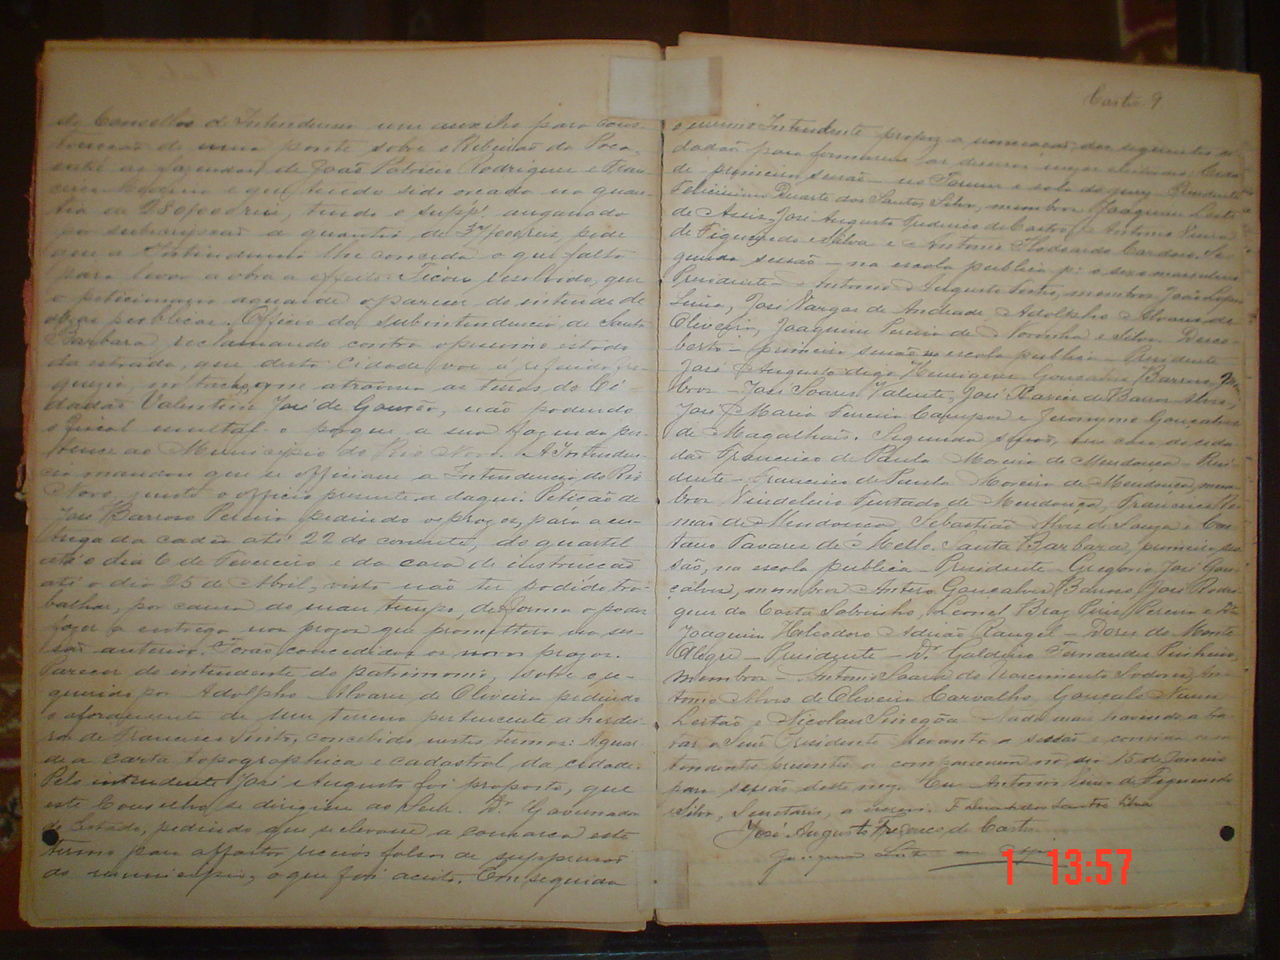 do Conselho de Intendencia um auxilio para cons-
trucção de uma ponte sobre o Ribeirão da Roça,
entre as fazendas de João Patricio Rodrigues e Fran-
cisco e que tendo sido orçado na quan-
tia de 280$000 reis, tendo o suppe. angariado
por subscripção a quantia de pede
que a Intendencia lhe conceda o que falta
para levar a obra a effeito. Ficou resolvido, que
o peticionario aguarde o parecer do intendente de
obras publicas. Officio da subintendencia de Santa
Barbara reclamando contra o pessimo estado
da estrada, que desta Cidade vae a referida fre-
guezia, no lugar que atravessa as terras do Ci-
dadão Valentim José de Gouvêa, não podendo
o fiscal multal-o porque a sua fazenda per-
tence ao Municipio do Rio Novo. A Intenden-
cia mandou que se officiasse a Intendencia do Rio
Novo, junto o officio presente a daqui. Petição de
José Barroso Pereira pedindo os prazos, para a en-
trega da cadêa até 22 do corrente, do quartel
até o dia 6 de Fevereiro e da casa de instrucção
até o dia 25 de Abril, visto não ter podido tra-
balhar, por causa do mau tempo, de forma a poder
fazer a entrega nos prazos que prometttera na ses-
são anterior. Forão concedidos os novos prazos.
Parecer do intendente do patrimonio, sobre o re-
querido por Adolpho Alvares de Oliveira pedindo
o aforamento de um terreno pertencente a herdei-
ros de Francisco Pinto, concebido nestes termos: Aguar-
de a carta topographica e cadastral da cidade.
Pelo intendente José Augusto foi proposto, que
este Conselho se dirigisse ao Senr. Dr. Governador
do Estado, pedindo que se elevasse a comarca este
termo para affastar receios falsos de suppressão
do municipio, o que foi aceito. Em seguida
Castro 9.
o mesmo Intendente propoz a nomeação dos seguintes ci-
dadãos para formarem as diversas mezas eleitoraes: Cidade
de primeira sessão – no Forum e sala do jury – Presidente
Felicissimo Duarte dos Santos Silva, membros Joaquim Leite
de Assis, José Augusto Frederico de Castro, Antonio Vieira
de Figueiredo e Silva e Antonio Theodardo Cardoso. Se-
gunda sessão – na escola publica pa. o sexo masculino
Presidente Antonio Augusto Pinto, membros João Lopes
Lima, José Vargas de Andrade, Adolpho Alvares de
Oliveira, Joaquim Pereira de Noronha e Silva. Desco-
berto – primeira sessão na escola publica – Presidente
José Augusto Henrique Gonçalves Barroso, mem-
bros – José Soares Valente, José Xavier de Barros Alves,
José Maria Pereira Campos e Jeronymo Gonçalves
de Magalhães. Segunda sessão, em casa do cida-
dão Francisco de Paula Moreira de Mendonça – Presi-
dente – Francisco de Paula Moreira de Mendonça, mem-
bros Vindelino Furtado de Mendonça, Francisco Ro-
mão de Mendonça, Sebastião Alves de Souza e Cae-
tano Tavares de Mello. Santa Barbara, primeira ses-
são, na escola publica – Presidente – Gregorio José Gon-
çalves, membros Antero Gonçalves Barroso, José Rodri-
gues da Costa Sobrinho, Leonel Braz Pires Pereira e
Joaquim Heleodoro Adrião Rangel – Dores do Monte
Alegre – Presidente – Dr. Galdino Fernandes Pinheiro,
membros – Antonio do Nascimento Sodré, An-
tonio Alves de Oliveira Carvalho, Gonçalo Nunes
Leitão e Nicolau Nada mais havendo a tra-
tar o Senr. Presidente levanta a sessão e convida os in-
tendentes presentes a comparecerem no dia 15 de Janeiro
para sessão deste mez. Eu Antonio Vieira de Figueiredo
Silva, Secretario, a escrevi. F Duarte dos Santos Silva
José Augusto Fredeco de Castro
Joaquim Leite de Assis
1 13:57